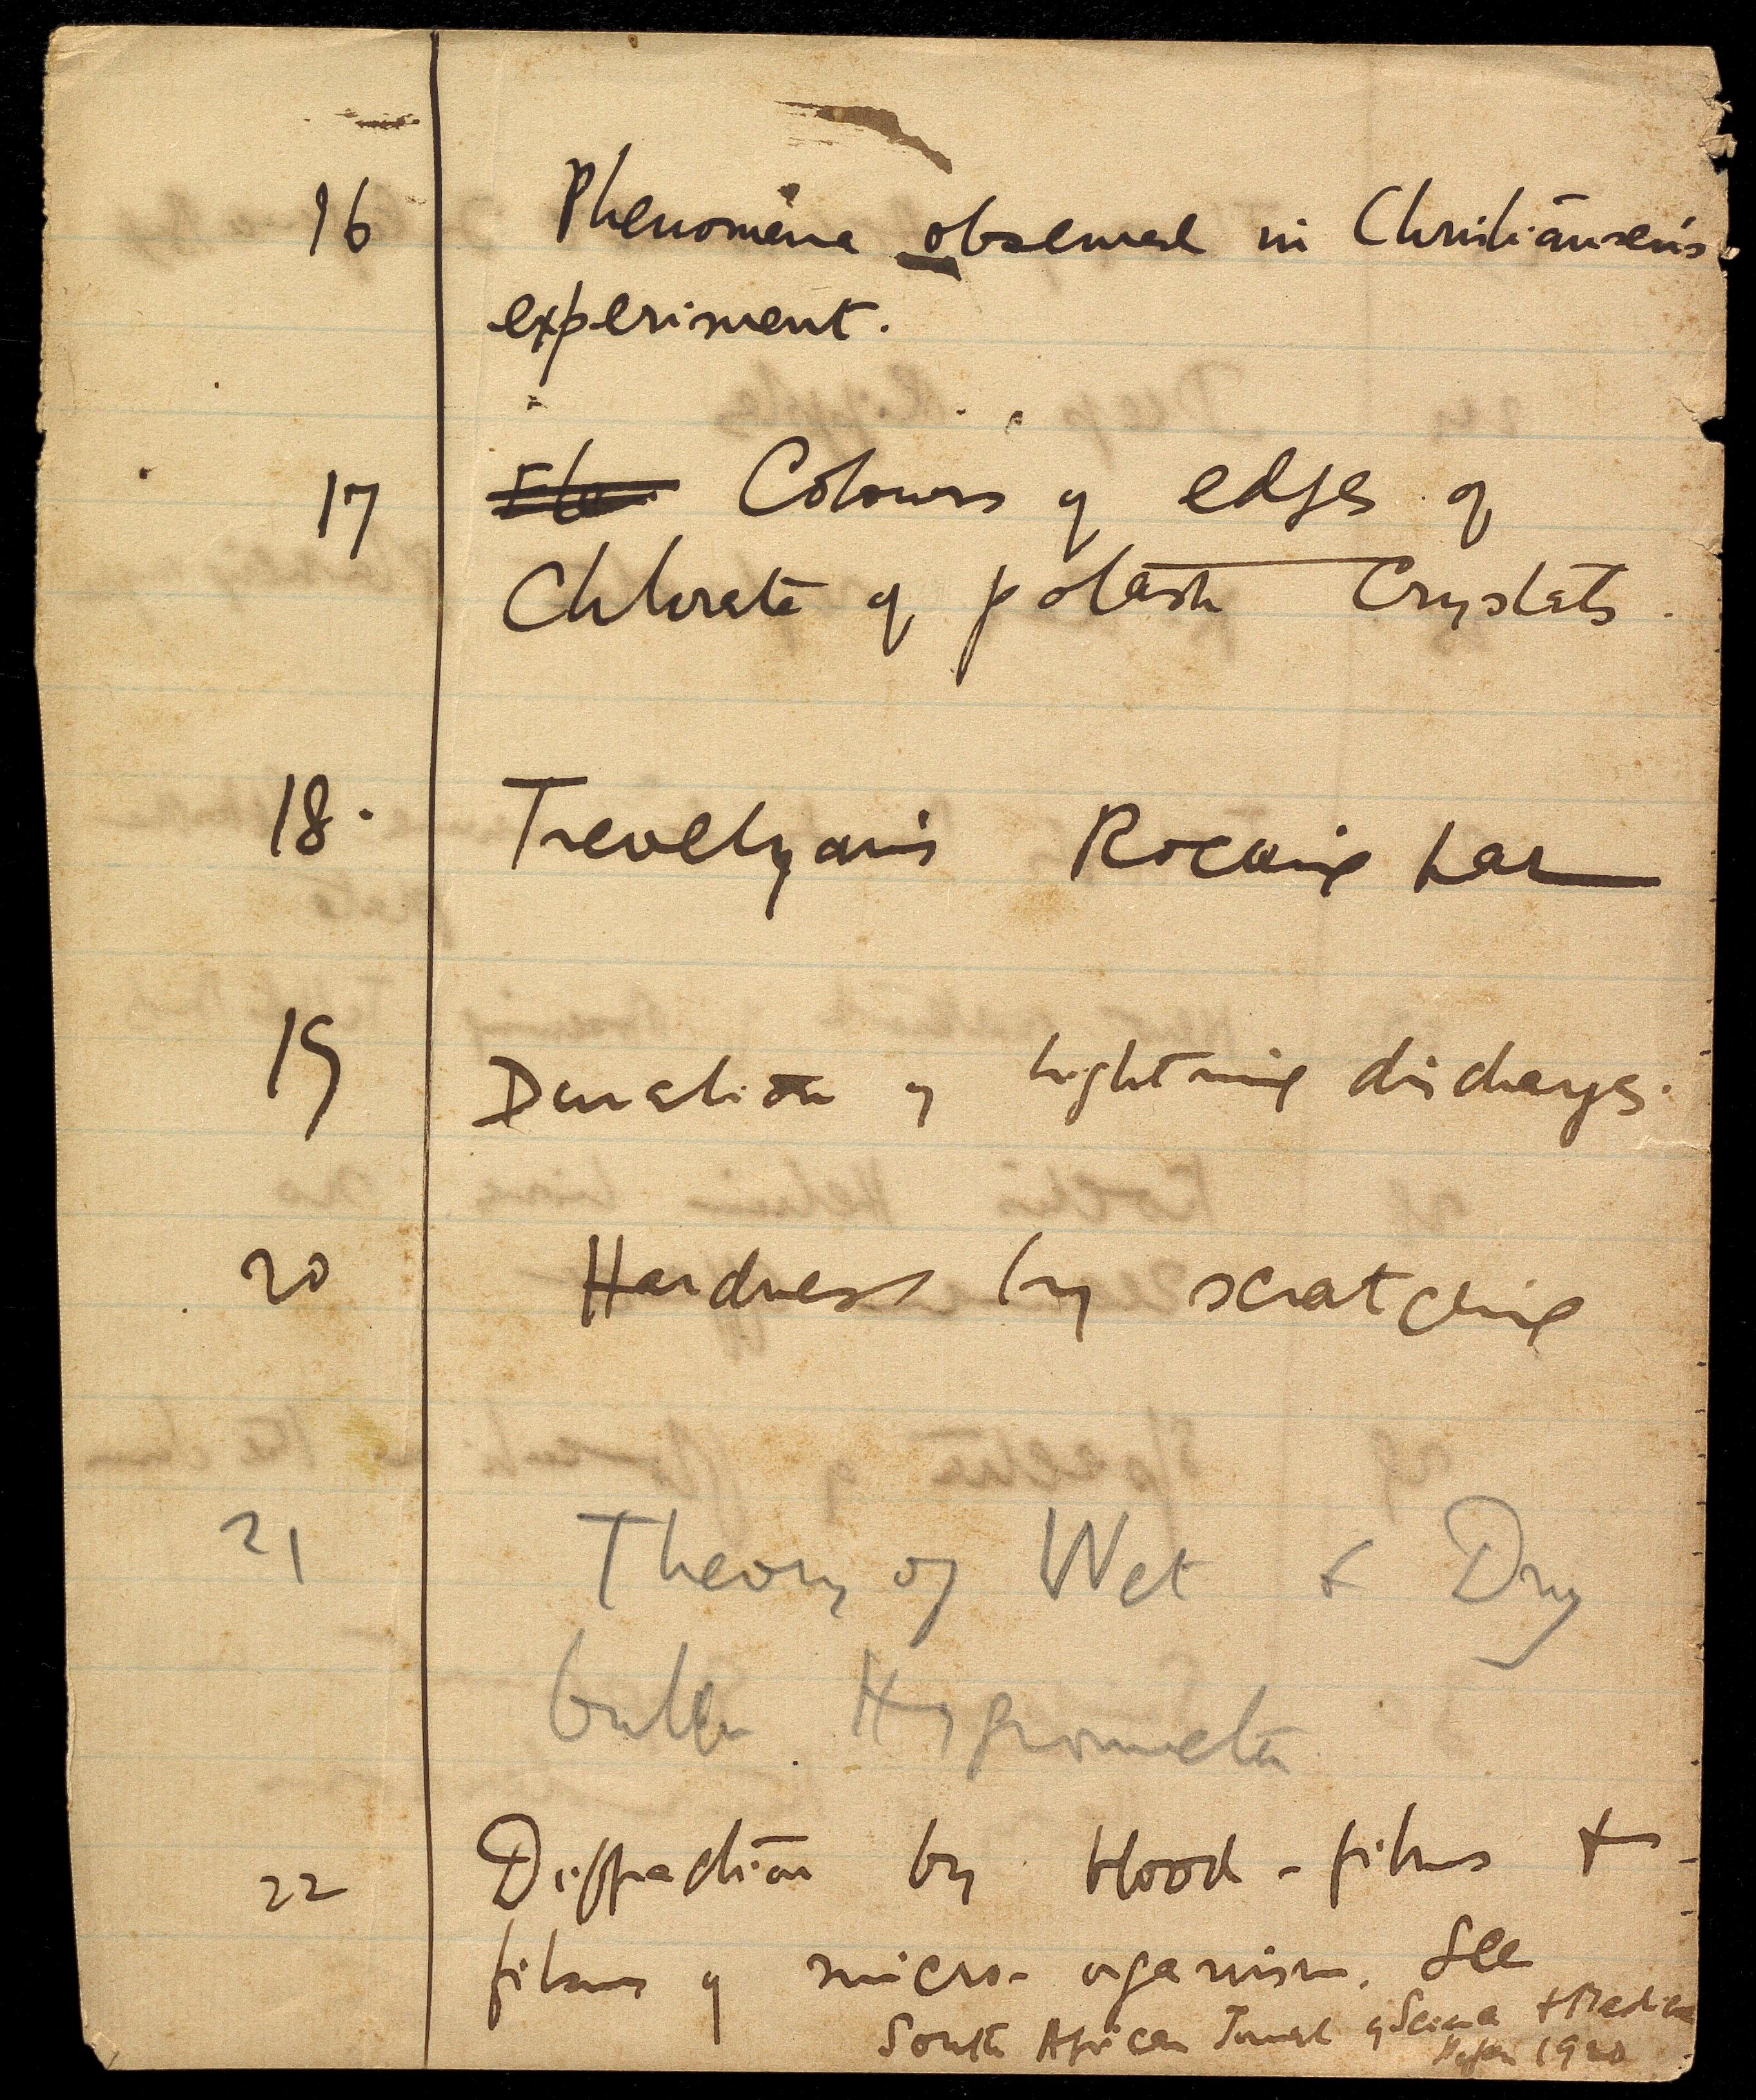 16 Phenomena observed in Christiansen's
experiment.
17 Colours of edges of
Chlorate of potash Crystals.
18. Trevelyan's Rocking bar
19 Duration of lightning discharge.
20 Hardness by scratching
21 Theory of Wet & Dry
bulb Hygrometer
22 Diffraction by blood-films &
films of micro-organism. See
South African Journal of Science & Medicine
1920